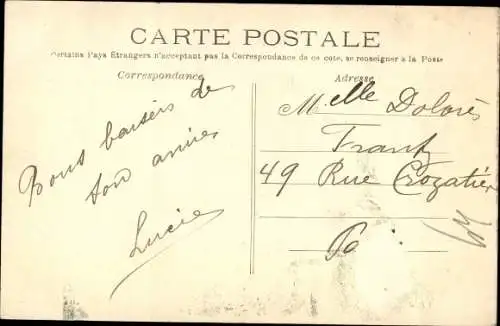 CARTE POSTALE
Certains Pays Étrangers n'acceptant pas la Correspondance de ce côté, se renseigner à la Poste
Correspondance
Bons baisers de
ton amie
Lucie
Adresse
Melle Dolorès
Frantz
49 Rue Crozatier